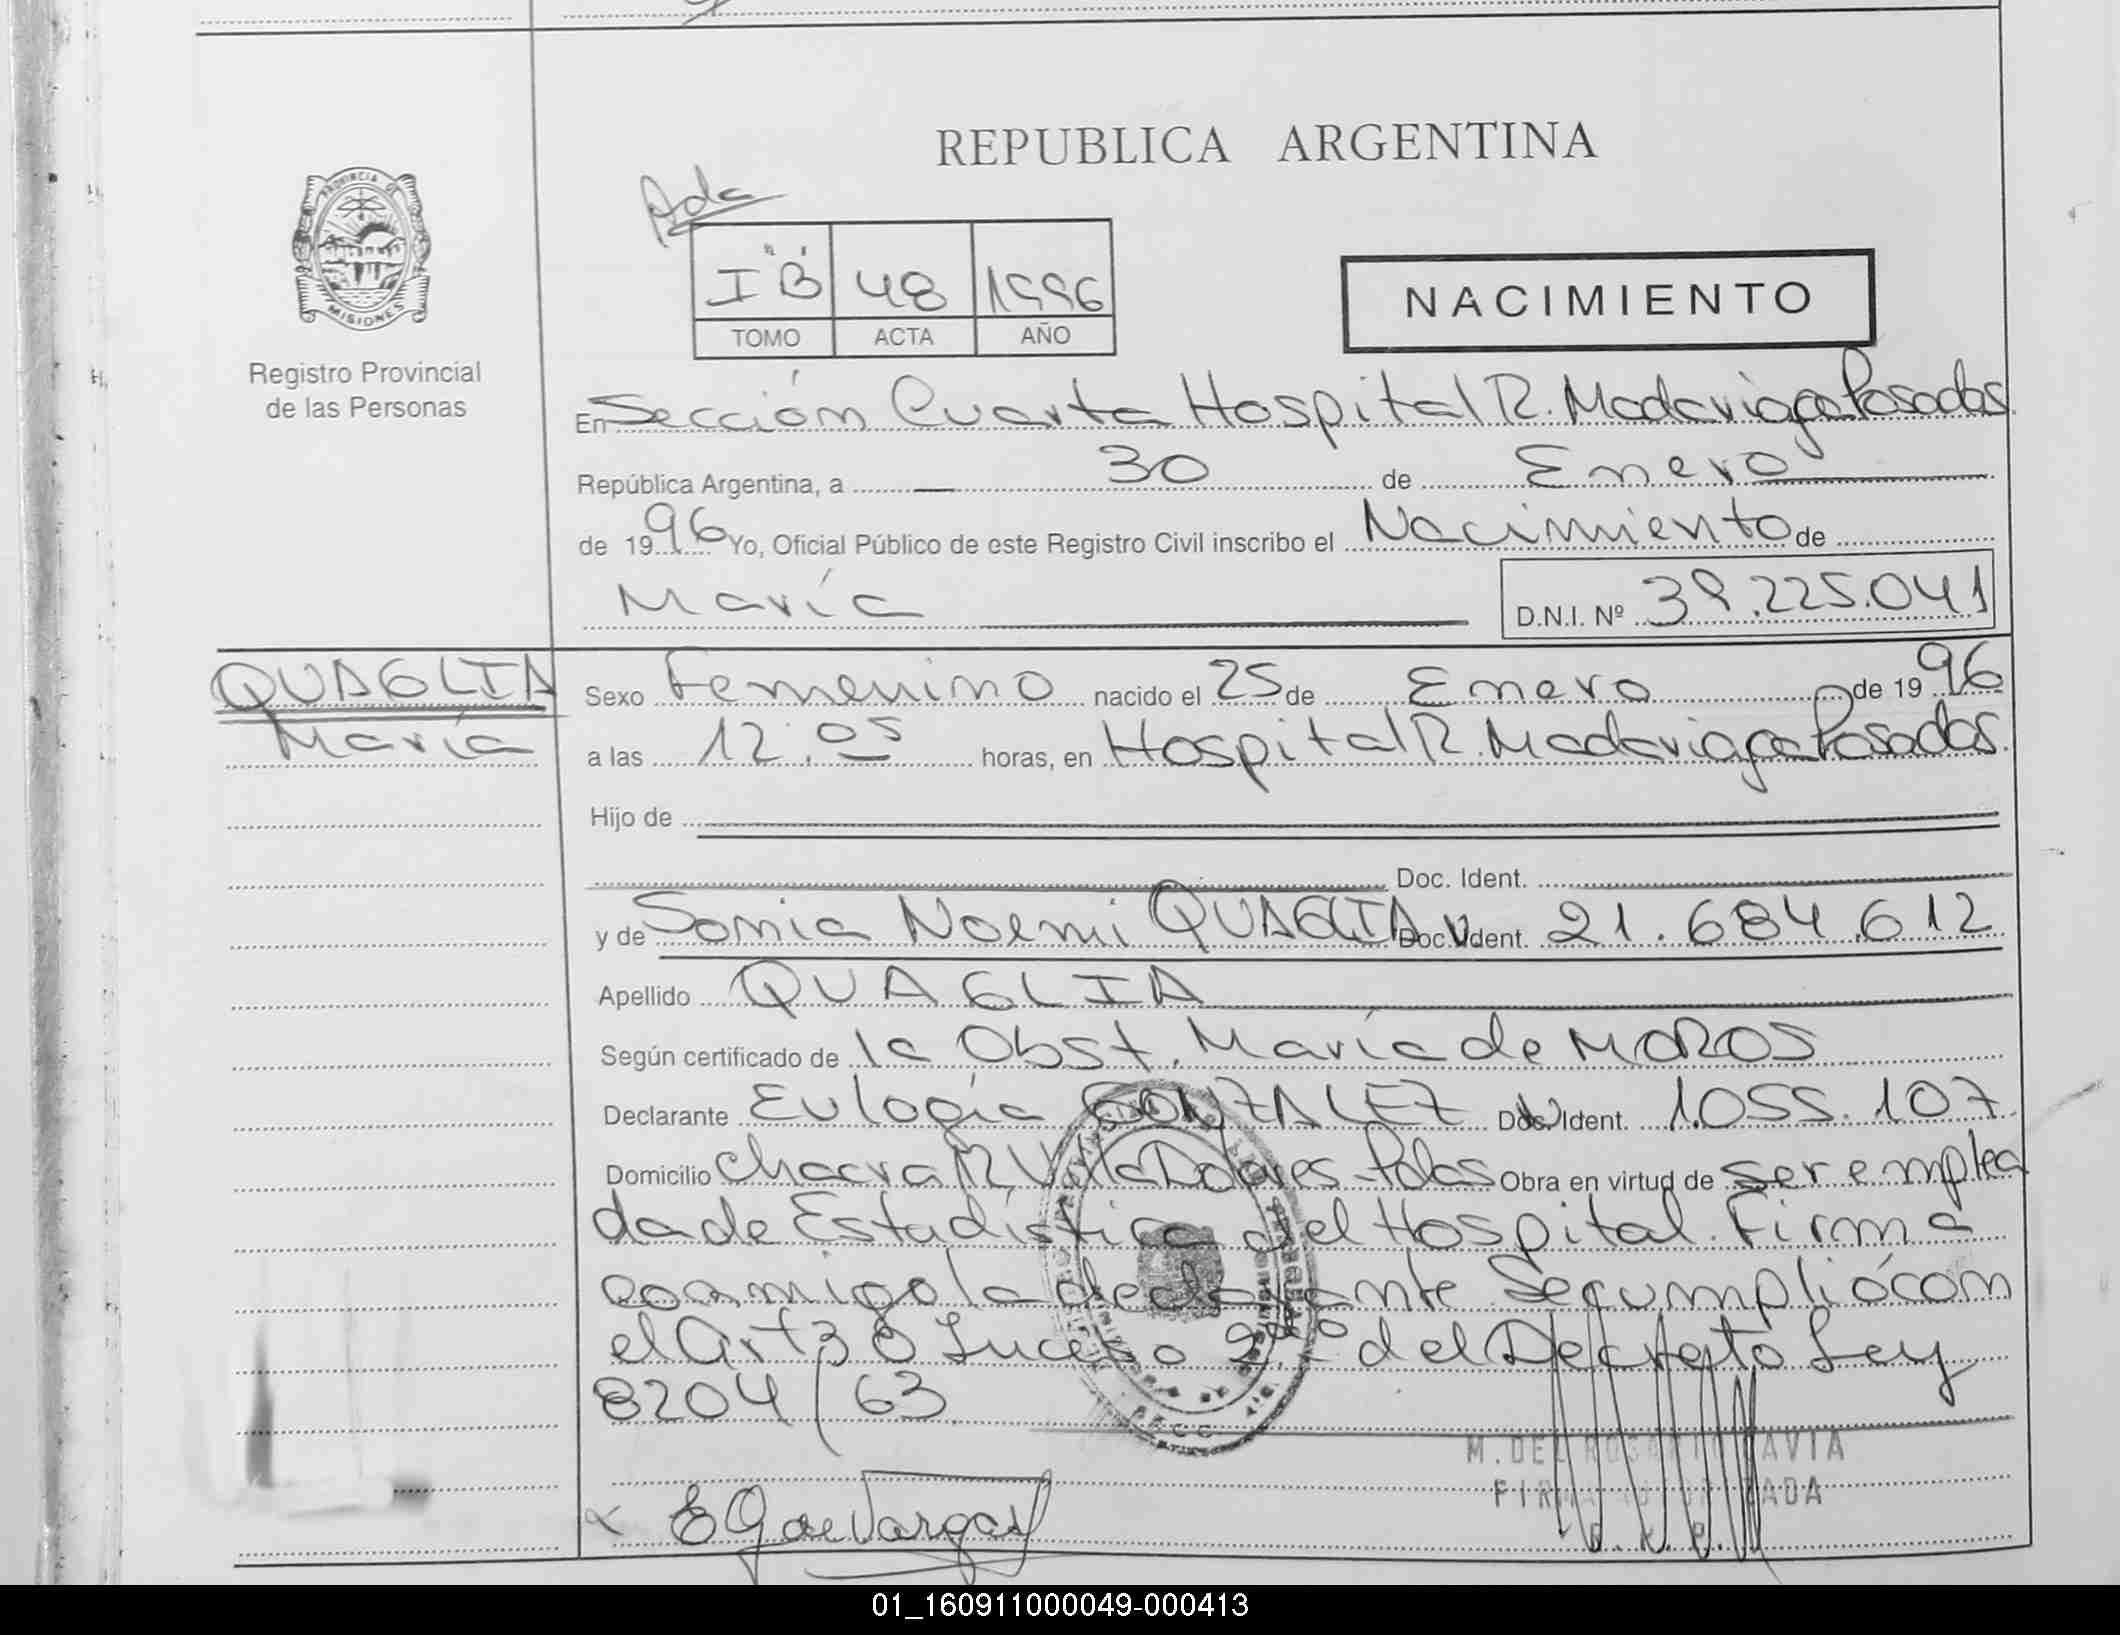 REPUBLICA ARGENTINA
PROVINCIA DE
MISIONES
Registro Provincial
de las Personas
Pda
I "B" 48 1996
TOMO ACTA AÑO
NACIMIENTO
En Sección Cuarta Hospital R. Madariaga Posadas
República Argentina, a 30 de Enero
de 1996 Yo, Oficial Público de este Registro Civil inscribo el Nacimiento de
María
D.N.I. Nº 39.225.041
QUAGLIA
María
Sexo Femenino nacido el 25 de Enero de 1996
a las 12:05 horas, en Hospital R. Madariaga Posadas.
Hijo de
Doc. Ident.
y de Sonia Noemi QUAGLIA Doc. Ident. 21.684.612
Apellido QUAGLIA
Según certificado de la Obst. María de MOROS
Declarante Eulogia GONZALEZ Doc. Ident. 1.055.107
Domicilio Chacra Villa Dolores - Pdas Obra en virtud de ser emplea
da de Estadística del Hospital. Firma
conmigo la declarante Se cumplió con
el Art 30 del Decreto Ley
8204/63
M. DEL AVIA
FIRMA AUTORIZADA